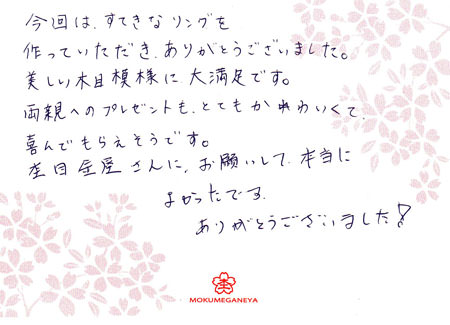 今回は、すてきなリングを
作っていただき、ありがとうございました。
美しい木目模様に、大満足です。
両親へのプレゼントも、とてもかわいくて、
喜んでもらえそうです。
杢目金屋さんに、お願いして、本当に
よかったです。
ありがとうございました!
MOKUMEGANEYA